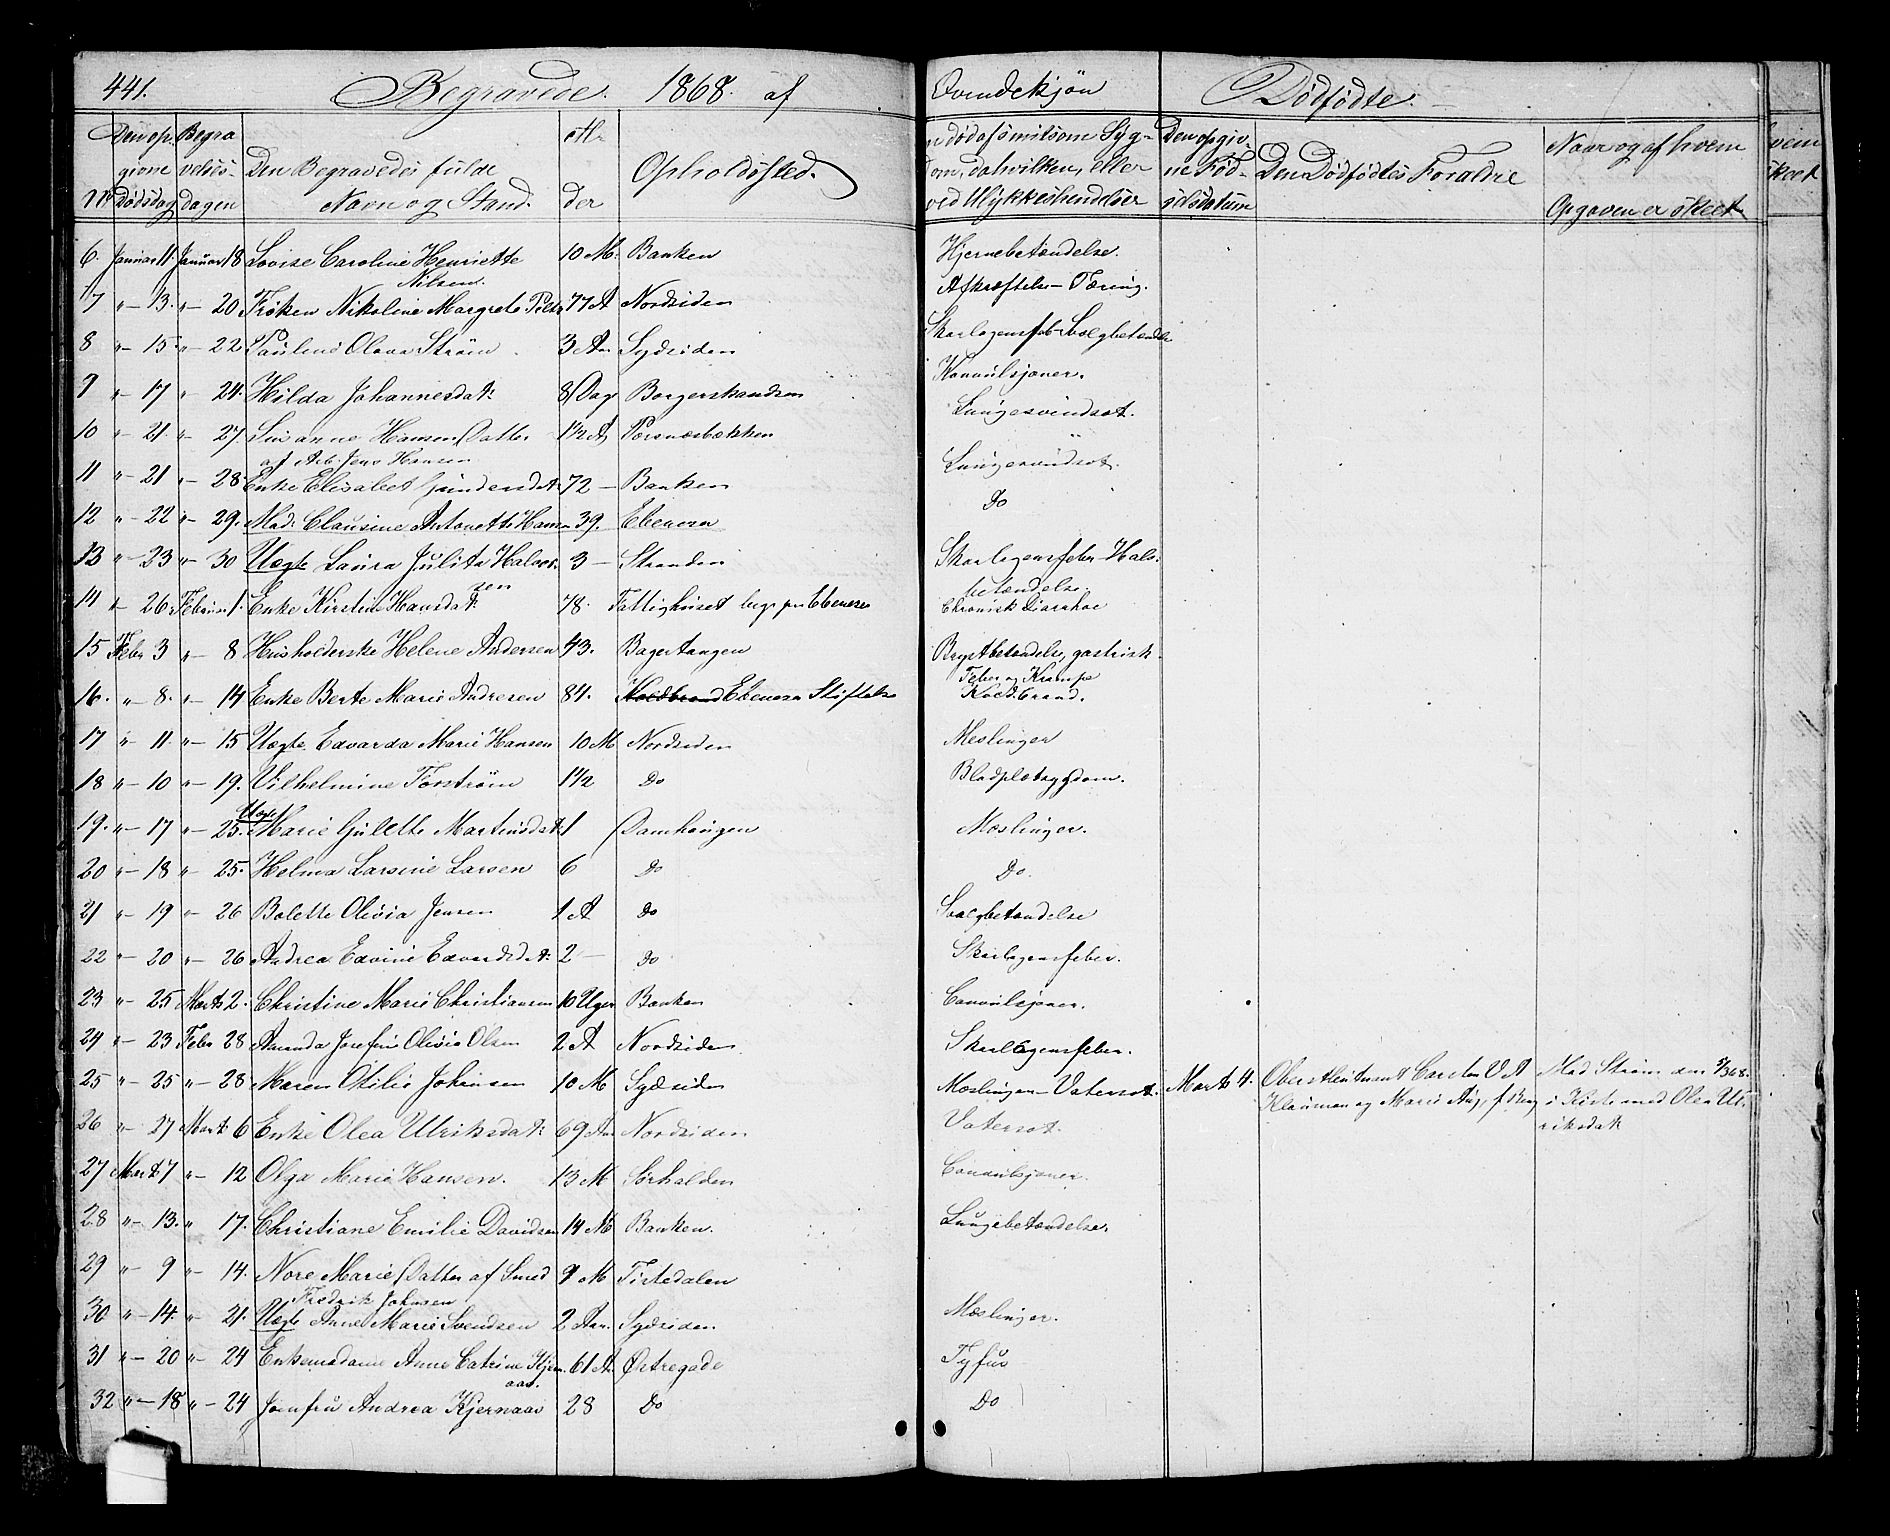 441. Begravede. 1868. af Qvindekjøn Dødfødte.
No
Den op-
givne
Dødsdag
Begra
velses-
dagen
Den Begravedes fulde
Navn og Stand.
Al-
der
Opholdssted.
døde af smitsom Syg-
dom, da hvilken, eller
ved Ulykkeshendelser
Den opgiv-
ne Fød-
selsdatum
Den Dødfødtes Forældre
Naar og af hvem
Opgaven er skeet
6. Januar 11. Januar 18 Lovise Caroline Henriette 10 M. Banken Hjernebetændelse.
Nilsen.
7 " 13. " 20 Frøken Nikoline Margrete 77 A Nordsiden Afkræftelse - Tæring.
8 " 15 " 22 Pauline Olava Strøm 3 Aar Sydsiden Skarlagensfeb - Svælgbetændelse
9 " 17 " 24. Hilda Johannesdat. 8 Dag Borgerskandsen Konvulsjoner.
10 " 21. " 27 Susanne Hansen, Datter 1 1/2 A Porsnæsbækken Lungesvindsot.
af Arb. Jens Hansen
11 " 21 " 28 Enke Elisabet Gundersdat. 72 — Banken Lungesvindsot.
12 " 22 " 29. Mad. Clausine Antonette Hansen 39. Ebenezer Do
13 " 23 " 30 Uægte Laura Julita Halvor- 3 — Stranden Skarlagensfeber - Hals-
sen betændelse.
14 " 26 Februar 1. Enke Kirstine Hansdat. 78. Fattighuset Ebenezer Chronisk Diarrhoe
15 Febr 3 " 8 Husholderske Helene Andersen 43. Bagertangen Brystbetændelse, gastrisk
Feber og Krampe
16. " 8. " 14 Enke Berte Marie Andresen 84. Koldbrand Ebenezer Stiftelse Koldbrand.
17 " 11. " 15 Uægte Edvarda Marie Hansen 10 M Nordsiden Meslinger
18 " 10 " 19. Vilhelmine Forstrøm 1 1/2 Do Blodpletsygdom.
19. " 17 " 25. Uægte Marie Gulette Martinsdat. 1 Damhaugen Mæslinger.
20 " 18 " 25. Helma Larsine Larsen 6 Do Do.
21 " 19 " 26 Bolette Olivia Jensen 1 A Do Svælgbetændelse
22 " 20 " 26 Andrea Edvine Edvardsdat. 2 — Do Skarlagensfeber.
23 " 25 Marts 2. Christine Marie Christiansen 10 Uger Banken Convulsjoner.
24 " 23 Febr 28 Amanda Josefine Olivia Olsen 2 A Nordsiden Skarlagensfeber.
25 " 25 " 28 Maren Otilie Johansen 10 M Sydsiden Mæslinger - Vatersot. Marts 4. Oberstleitnant Carsten V. A Mad Strøm den 5/3 68.
26 " 27 Mart 6 Enke Olea Ulriksdat. 69 Aar Nordsiden Vatersot. Klauman og Marie Aug. f. Berg i Kiste med Olea Ul-
riksdat
27 Mart 7 " 12 Olga Marie Hansen. 13 M Sørhalden Convulsjoner.
28 " 13. " 17. Christiane Emilie Davidsen 14 M Banken. Lungebetændelse
29 " 9 " 14. Nore Marie, Datter af Smed 9 M Tistedalen
Fredrik Johnsen
30 " 14. " 21. Uægte Anne Marie Svendsen 2 Aar. Sydsiden Mæslinger.
31 " 20 " 24 Enkemadame Anne Catrine Kjern- 61 A Østregade Tyfus
aas.
32 " 18 " 24 Jomfru Andrea Kjernaas 28 Do Do